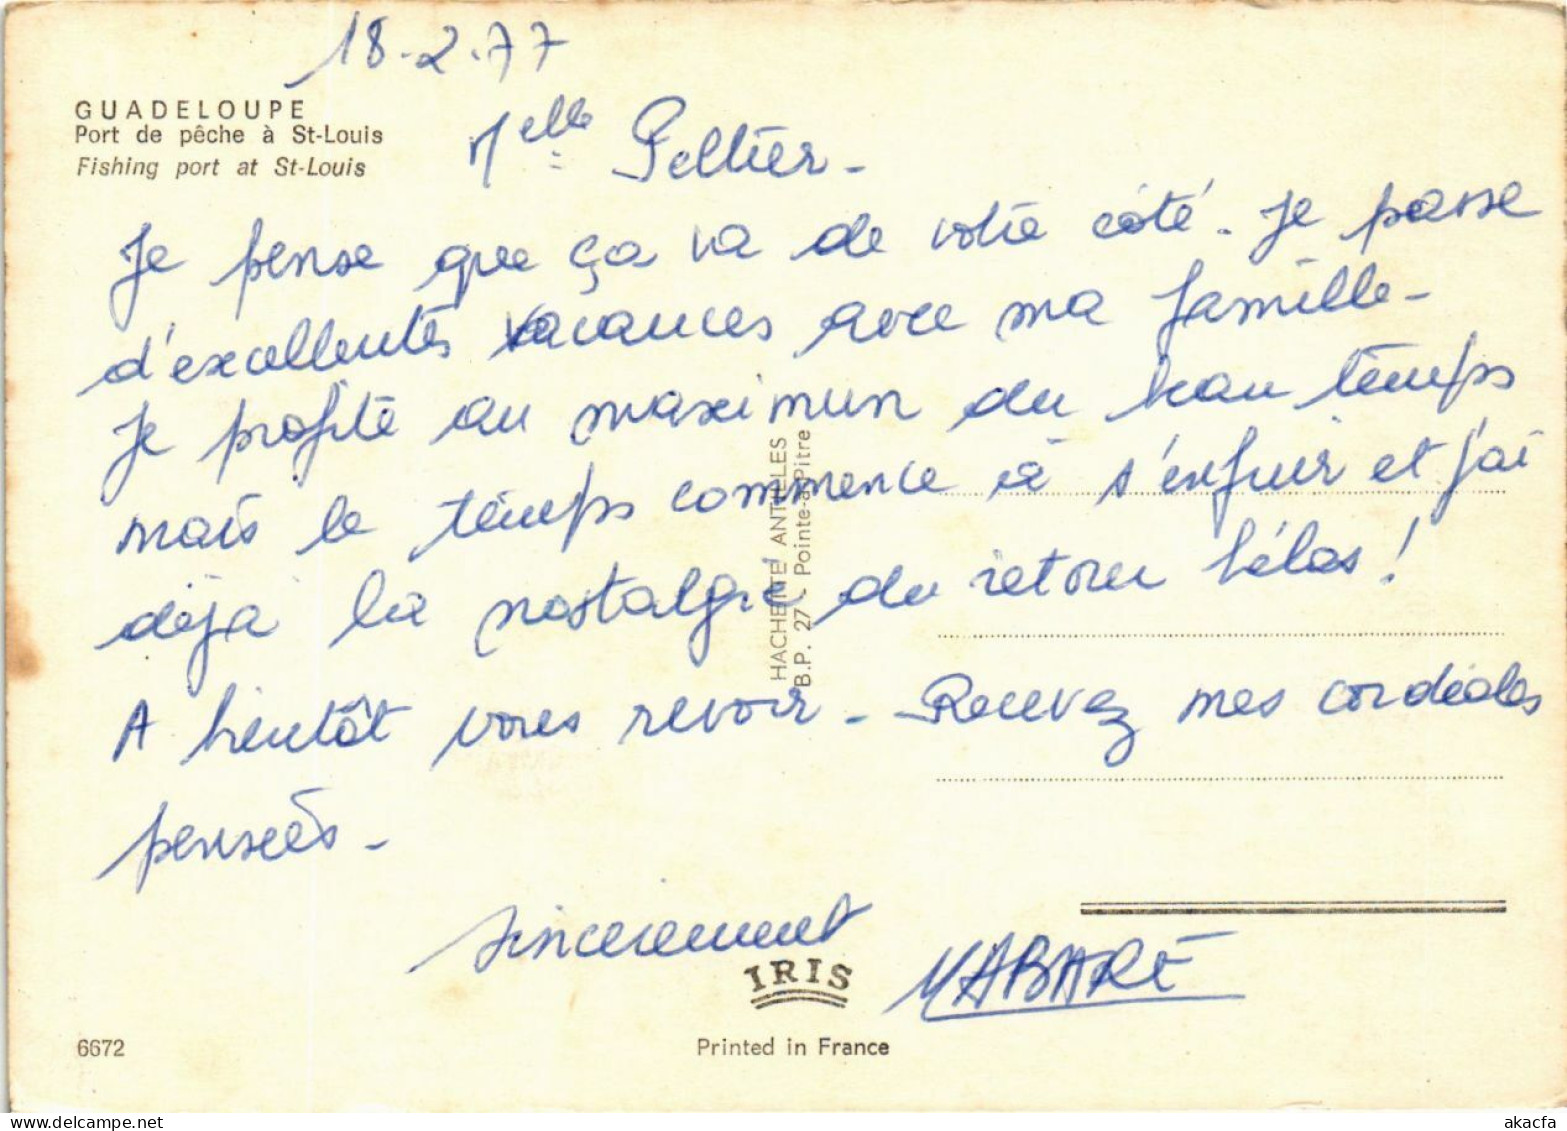 18-2-77
GUADELOUPE
Port de pêche à St-Louis
Fishing port at St-Louis
Melle Peltier -
Je pense que ça va de votre côté. Je passe
d'excellentes vacances avec ma famille -
Je profite au maximun du beau temps
mais le temps commence à s'enfuir et j'ai
déjà la nostalgie du retour hélas !
A bientôt vous revoir - Recevez mes cordiales
pensées -
Sincerement
MABARÉ
HACHETTE ANTILLES
B.P. 27 - Pointe-à-Pitre
IRIS
6672
Printed in France
www.delcampe.net
akacfa